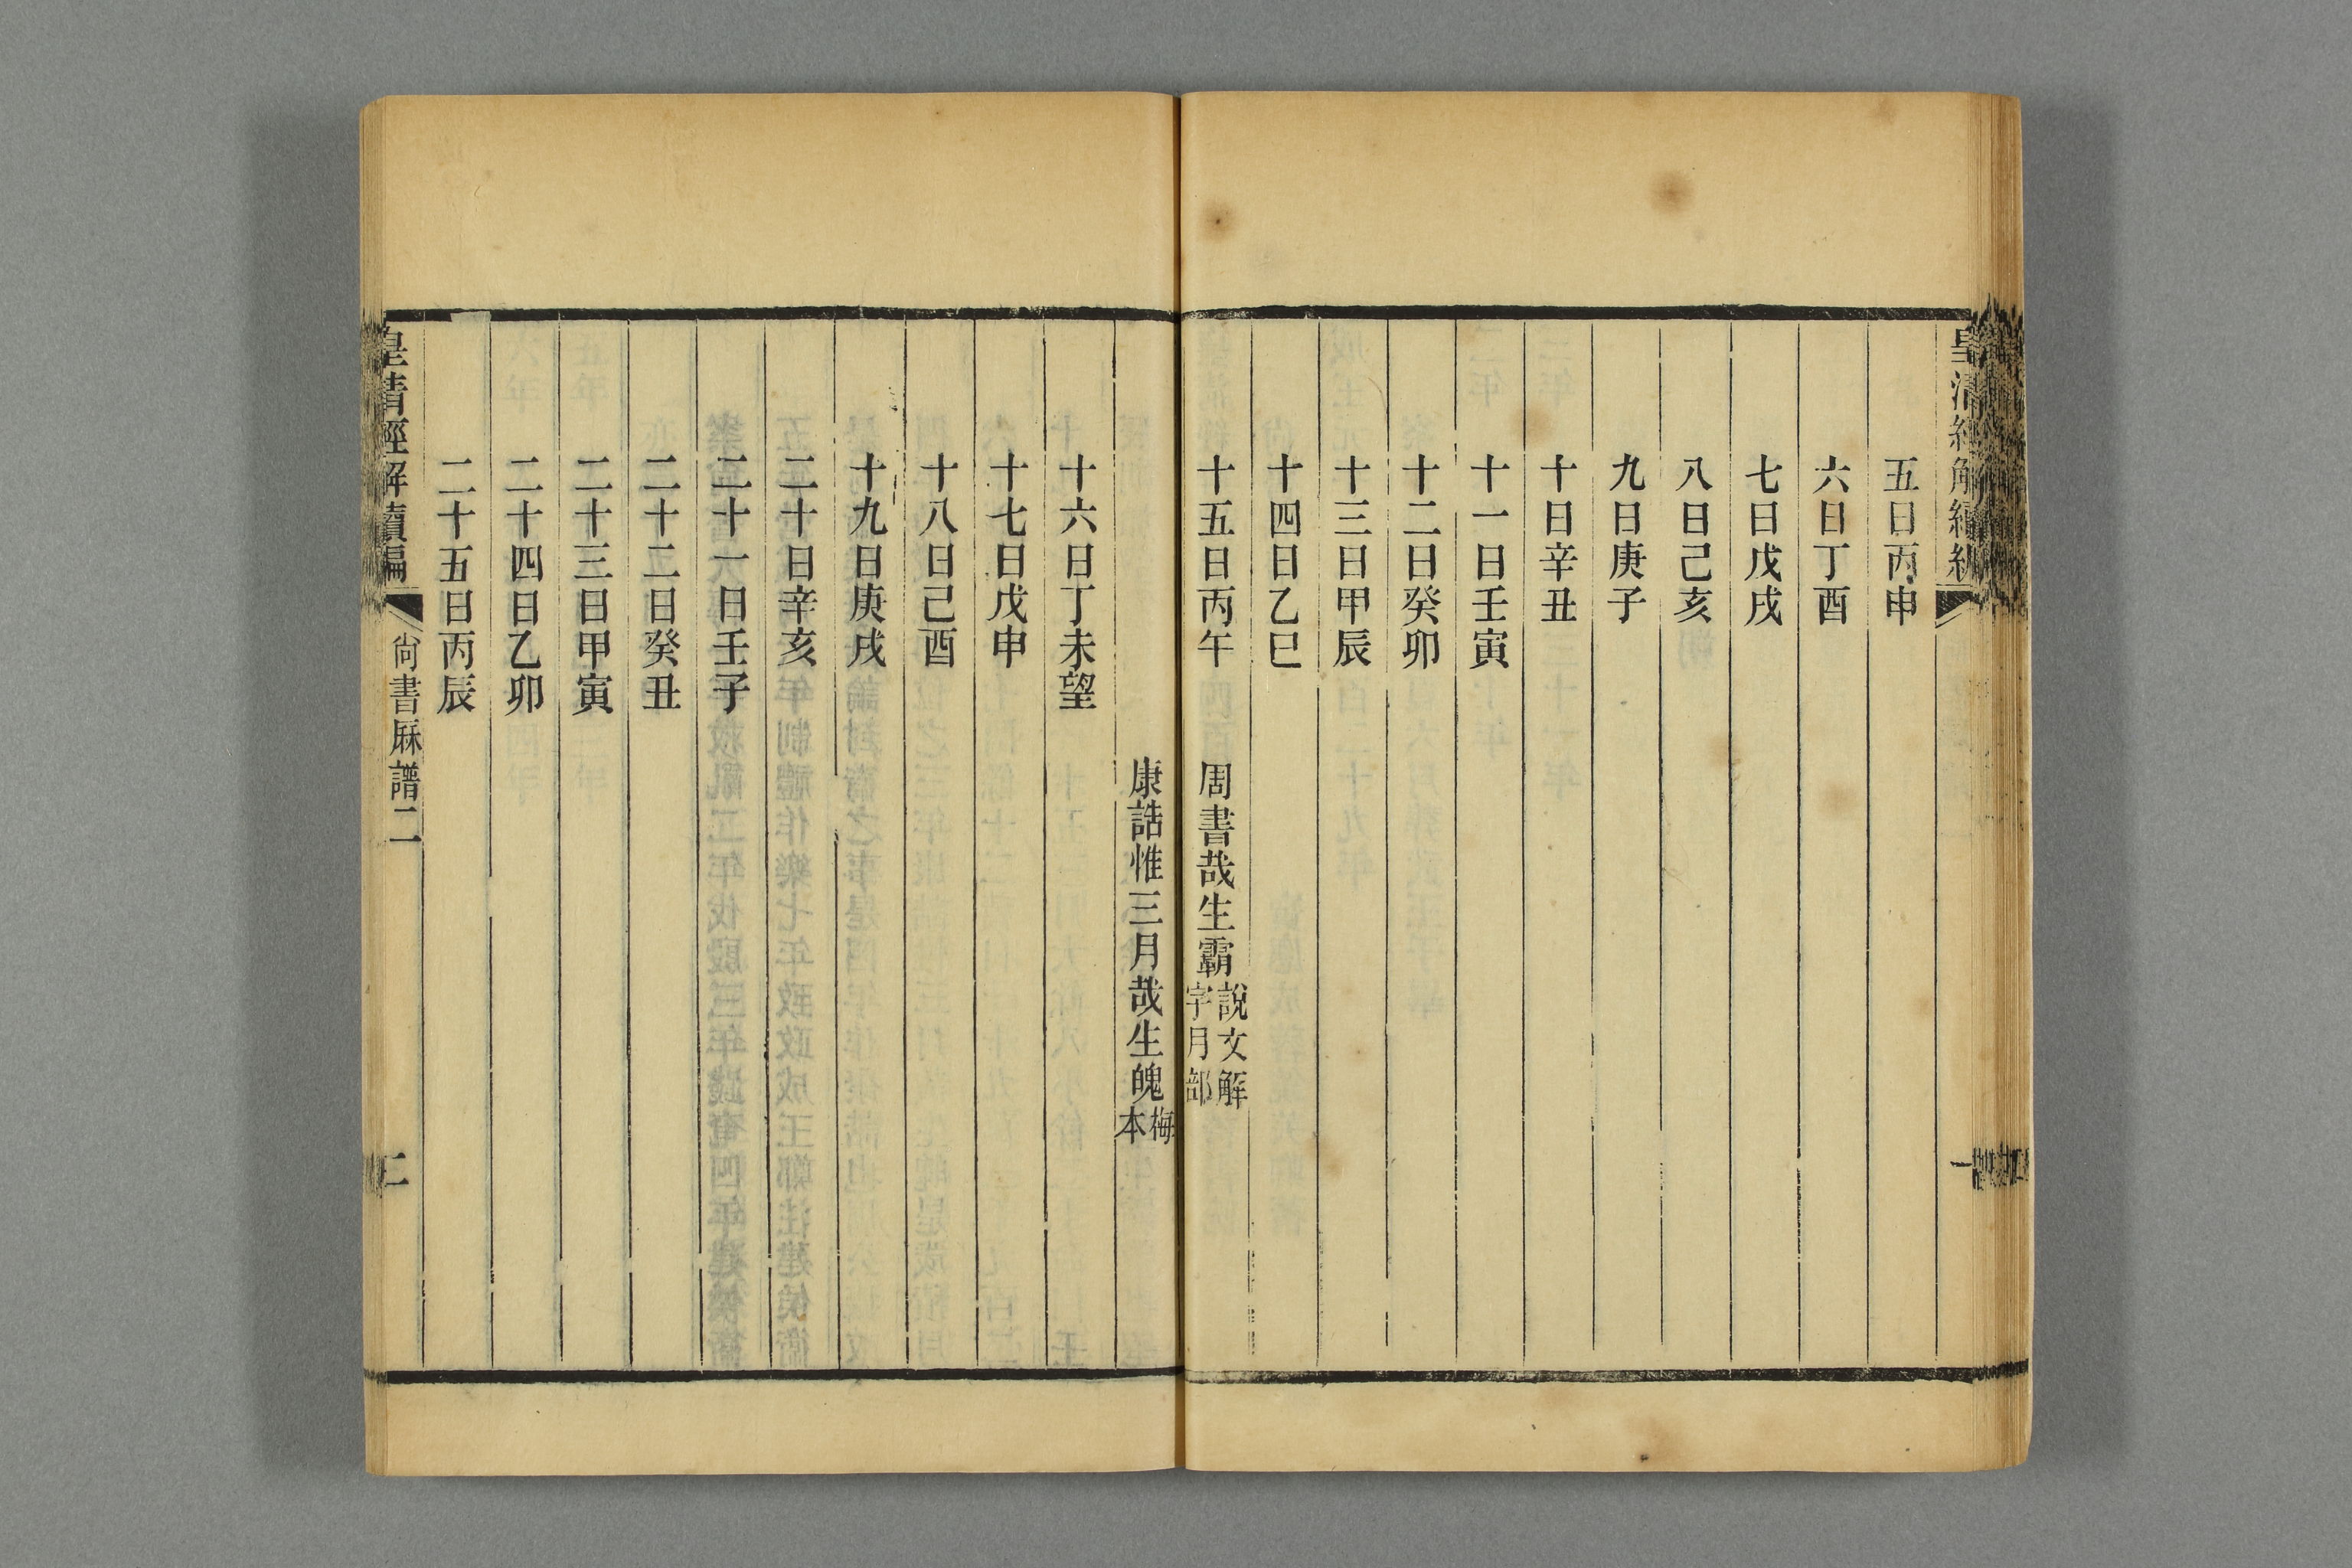 五日丙申
六日丁酉
七日戊戌
八日己亥
九日庚子
十日辛丑
十一日壬寅
十二日癸卯
十三日甲辰
十四日乙巳
十五日丙午 周書哉生霸 說文解字月部
康誥惟三月哉生魄 梅本
十六日丁未望
十七日戊申
十八日己酉
十九日庚戌
二十日辛亥
二十一日壬子
二十二日癸丑
二十三日甲寅
二十四日乙卯
二十五日丙辰
皇清經解續編 尚書厤譜二 二